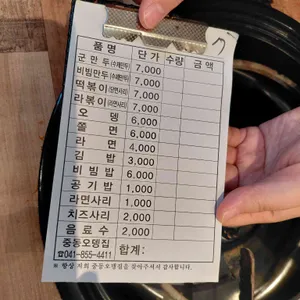 품명 단가 수량 금액
군만두(수제만두) 7,000
비빔만두(수제만두) 7,000
떡볶이(당면사리) 7,000
라볶이(라면사리) 7,000
오뎅 6,000
쫄면 6,000
라면 4,000
김밥 3,000
비빔밥 6,000
공기밥 1,000
라면사리 1,000
치즈사리 2,000
음료수 2,000
중동오뎅집 합계:
☎041-855-4411
※ 항상 저희 중동오뎅집을 찾아주셔서 감사합니다.